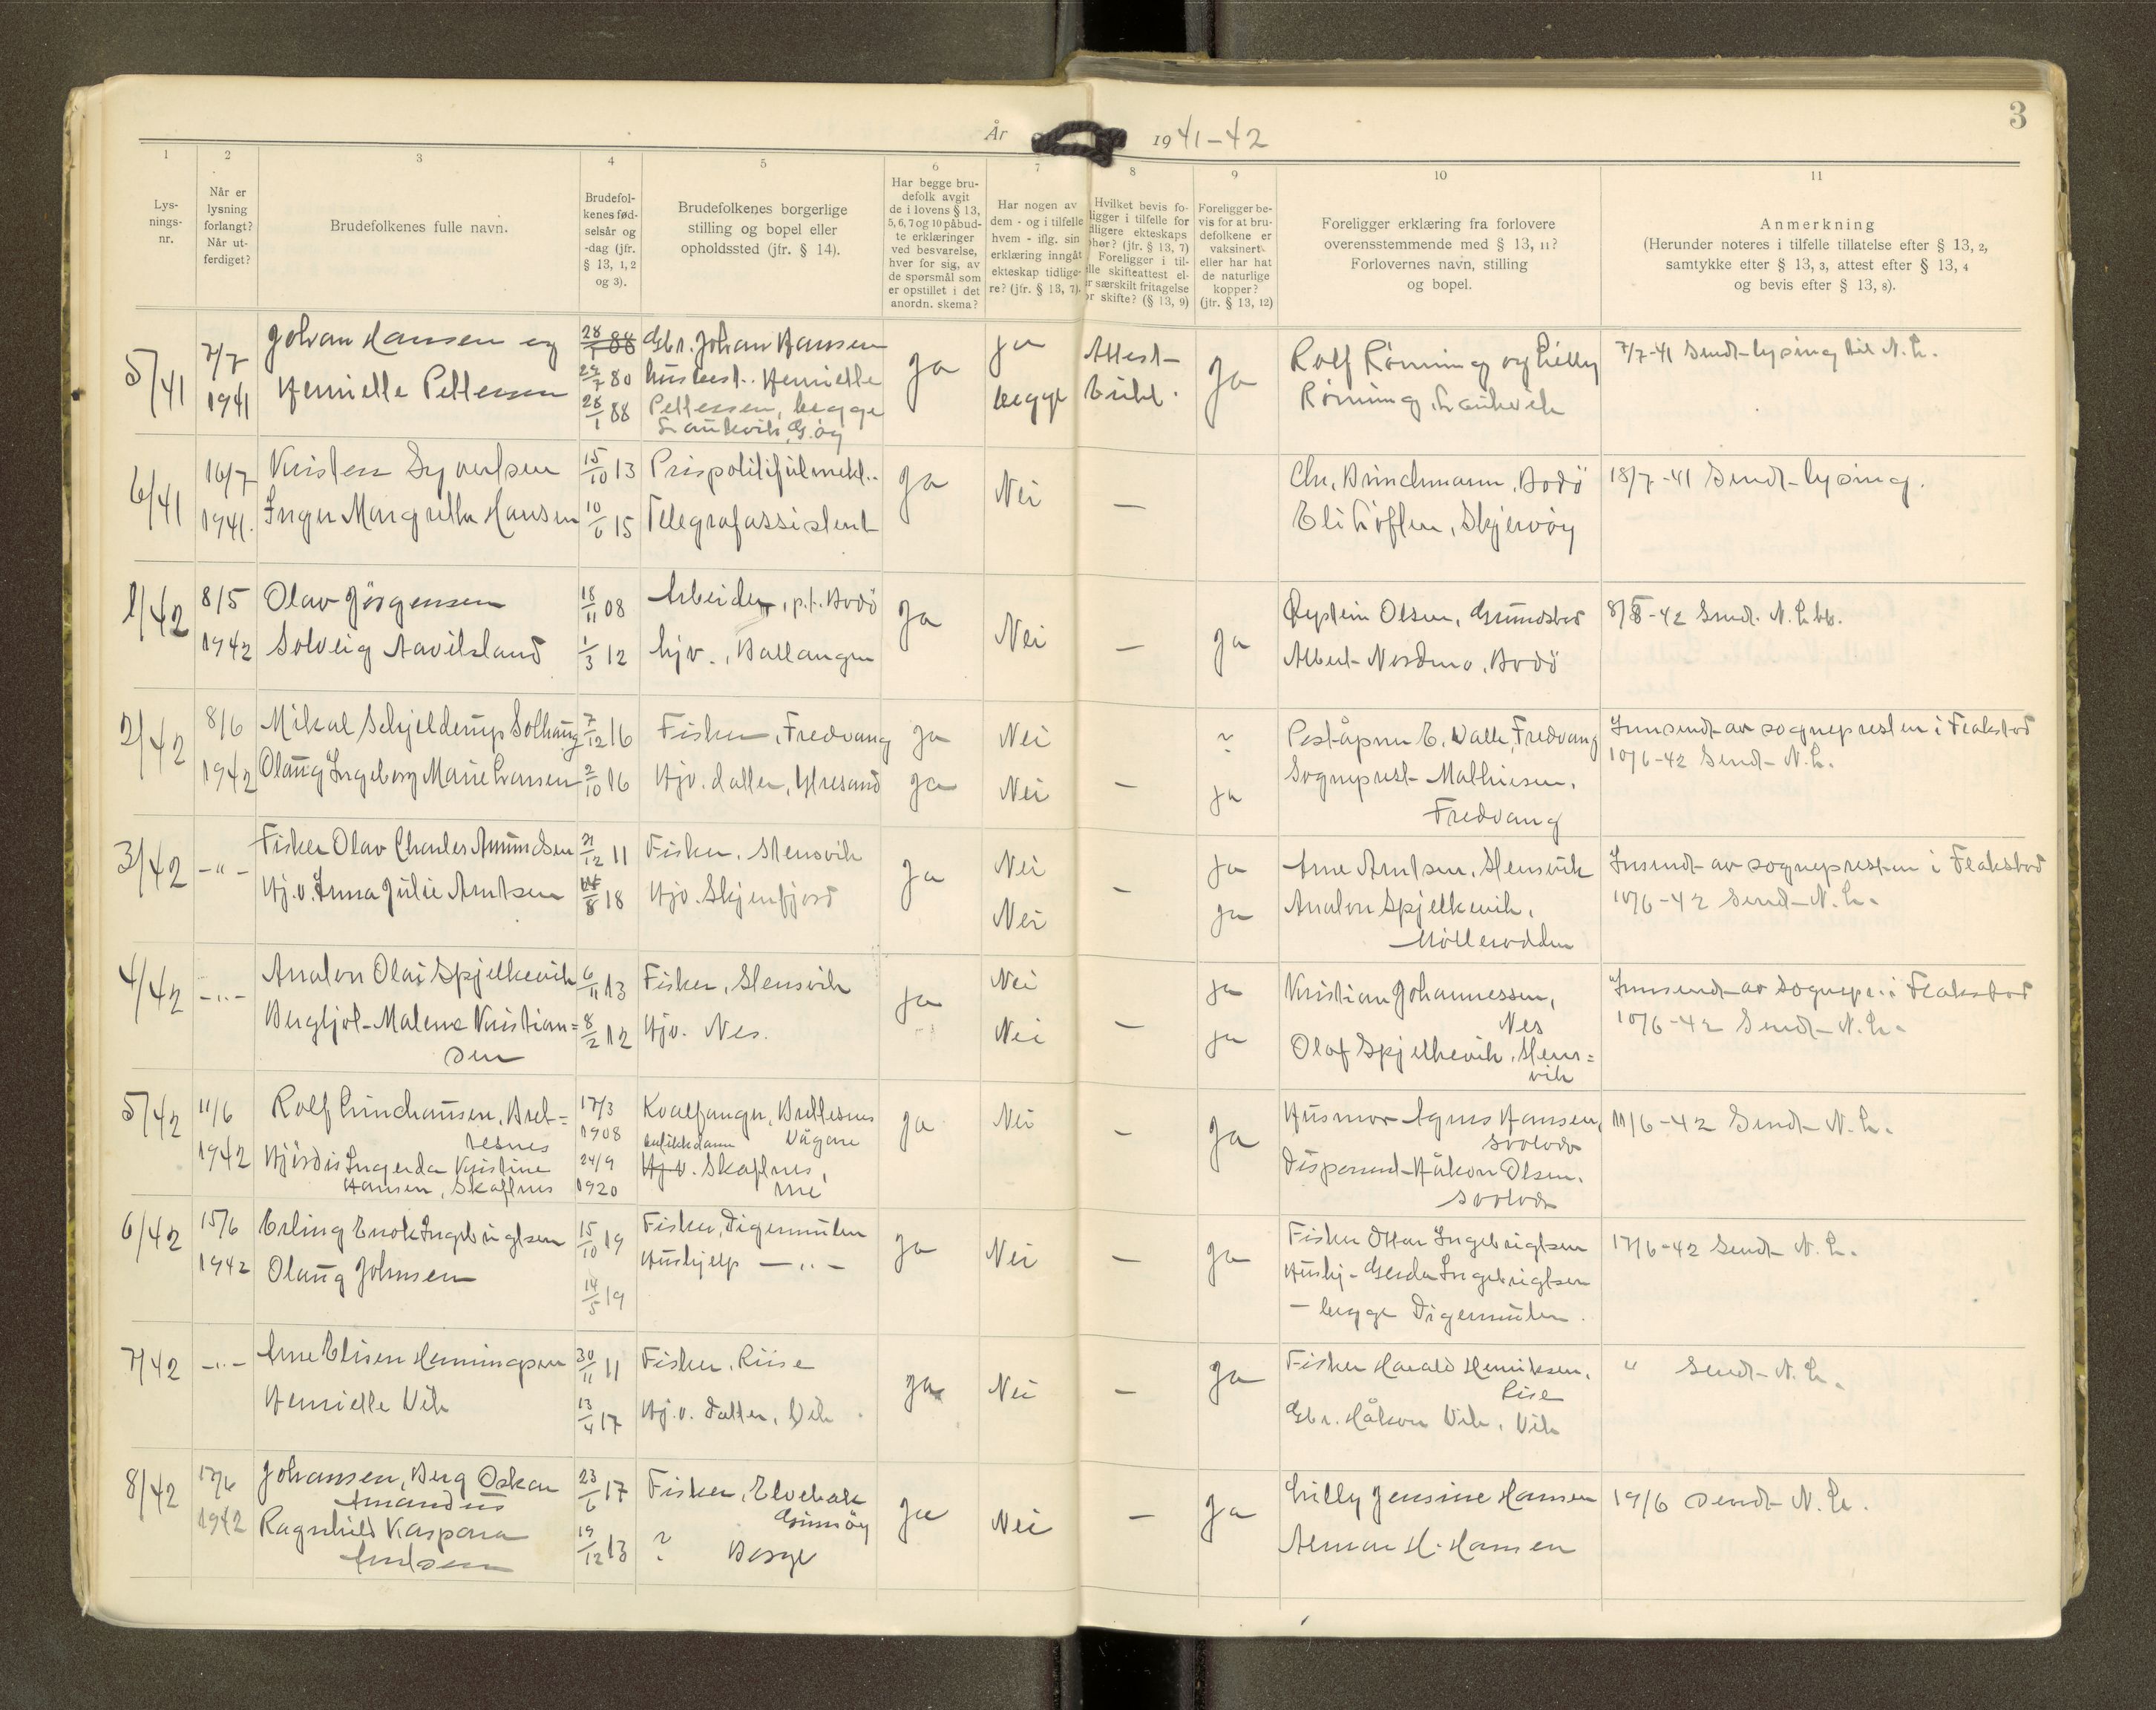 3
År 1941-42
1
2
3
4
5
6
7
8
9
10
11
Lys-
nings-
nr.
Når er
lysning
forlangt?
Når ut-
ferdiget?
Brudefolkenes fulle navn.
Brudefol-
kenes fød-
selsår og
-dag (jfr.
§ 13, 1, 2
og 3).
Brudefolkenes borgerlige
stilling og bopel eller
opholdssted (jfr. § 14).
Har begge bru-
defolk avgit
de i lovens § 13,
5, 6, 7 og 10 påbud-
te erklæringer
ved besvarelse,
hver for sig, av
de spørsmål som
er opstillet i det
anordn. skema?
Har nogen av
dem - og i tilfelle
hvem - iflg. sin
erklæring inngåt
ekteskap tidlige-
re? (jfr. § 13, 7).
Hvilket bevis fo-
ligger i tilfelle for
dligere ekteskaps
phør? (jfr. § 13, 7)
Foreligger i til-
lle skifteattest el-
r særskilt fritagelse
or skifte? (§ 13, 9)
Foreligger be-
vis for at bru-
defolkene er
vaksinert
eller har hat
de naturlige
kopper?
(jfr. § 13, 12)
Foreligger erklæring fra forlovere
overensstemmende med § 13, 11?
Forlovernes navn, stilling
og bopel.
Anmerkning
(Herunder noteres i tilfelle tillatelse efter § 13, 2,
samtykke efter § 13, 3, attest efter § 13, 4
og bevis efter § 13, 8).
5/41
7/7
1941
Johan Hansen og
Henrielle Pettersen
28/1 88
29/7 80
28/1 88
Gbr. Johan Hansen
husbest. Henrielle
Pettersen, begge
Laukvik, G.øy
Ja
Ja
begge
Attest
Ja
Rolf Rønning og Lilly
Rønning, Laukvik
7/7-41 Sendt lysing til N. L.
6/41
16/7
1941.
Kristen Syvertsen
Inger Margrethe Hansen
15/10 13
10/6 15
Prispolitifullmekt.
Telegrafassistent
Ja
Nei
—
Chr. Brinchmann, Bodö
Eli Løffler, Skjervøy
18/7-41 Sendt lysing.
1/42
8/5
1942
Olav Jörgensen
Solveig Aavitsland
18/11 08
1/3 12
Arbeider, p.t. Bodö
hjv., Ballangen
Ja
Nei
—
Ja
Øystein Olsen, Grimstad
Albert Nordmo, Bodö
8/5-42 Send. N. L. bl.
2/42
8/6
1942
Mikal Schjelderup Solhaug
Olaug Ingeborg Marie Larsen
7/12 16
2/10 16
Fisker, Fredvang
Hjv. datter, Ytresand
Ja
Ja
Nei
Nei
—
?
Ja
Poståpner E. Valle, Fredvang
Sogneprest Mathiesen,
Fredvang
Innsendt av sognepresten i Flakstad
10/6-42 Sendt N. L.
3/42
-"-
Fisker Olav Charles Amundsen
Hj.v. Inna Julie Arntsen
21/12 11
14/8 18
Fisker, Stensvik
Hjv. Skjenfjord
Ja
Nei
Nei
—
Ja
Ja
Arne Arntsen, Stensvik
Analon Spjelkevik,
Mölleodden
Insendt av sognepresten i Flakstad
10/6-42 Send N. L.
4/42
-"-
Analon Olai Spjelkevik
Bergljot Malene Kristian=
sen
6/11 13
8/2 12
Fisker, Stensvik
Hjv. Nes.
Ja
Nei
Nei
—
Ja
Ja
Kristian Johannessen,
Nes
Olaf Spjelkevik, Stens=
vik
Innsendt av Sognepr. i Flakstad
10/6-42 Sendt N. L.
5/42
11/6
1942
Rolf Lindhausen, Bret=
tesnes
Hjördis Ingerda Kristine
Hansen, Skaftnes
17/3
1908
24/9
1920
Kvalfanger, Brettesnes
Vågane
butikkdame
Hj.v. Skaftnes,
Ja
Nei
—
Ja
Husmor Agnes Hansen,
Svolvær
Disponent Håkon Olsen,
Svolvær
11/6-42 Sendt N. L.
6/42
15/6
1942
Erling Enok Ingebrigtsen
Olaug Johnsen
15/10 19
14/5 19
Fisker, Digermulen
Hushjelp -"-
Ja
Nei
—
Ja
Fisker Ottar Ingebrigtsen
Hushj. Gerda Ingebrigtsen
- begge Digermulen.
17/6-42 Sendt N. L.
7/42
-"-
Arne Elisen Henningsen
Henrielle Vik
30/11 11
13/4 17
Fisker, Riise
Hj.v. datter, Vik
Ja
Nei
—
Ja
Fisker Harald Henriksen,
Rise
Gbr. Håkon Vik, Vik
" Sendt N. L.
8/42
17/6
1942
Johansen, Berg Oskar
Amandus
Ragnhild Kaspara
23/6 17
19/12 13
Fisker, Elvebakk
Gimsøy
? Borge
Ja
Nei
—
Ja
Lilly Jensine Hansen
H. Hansen
19/6 sendt N. L.